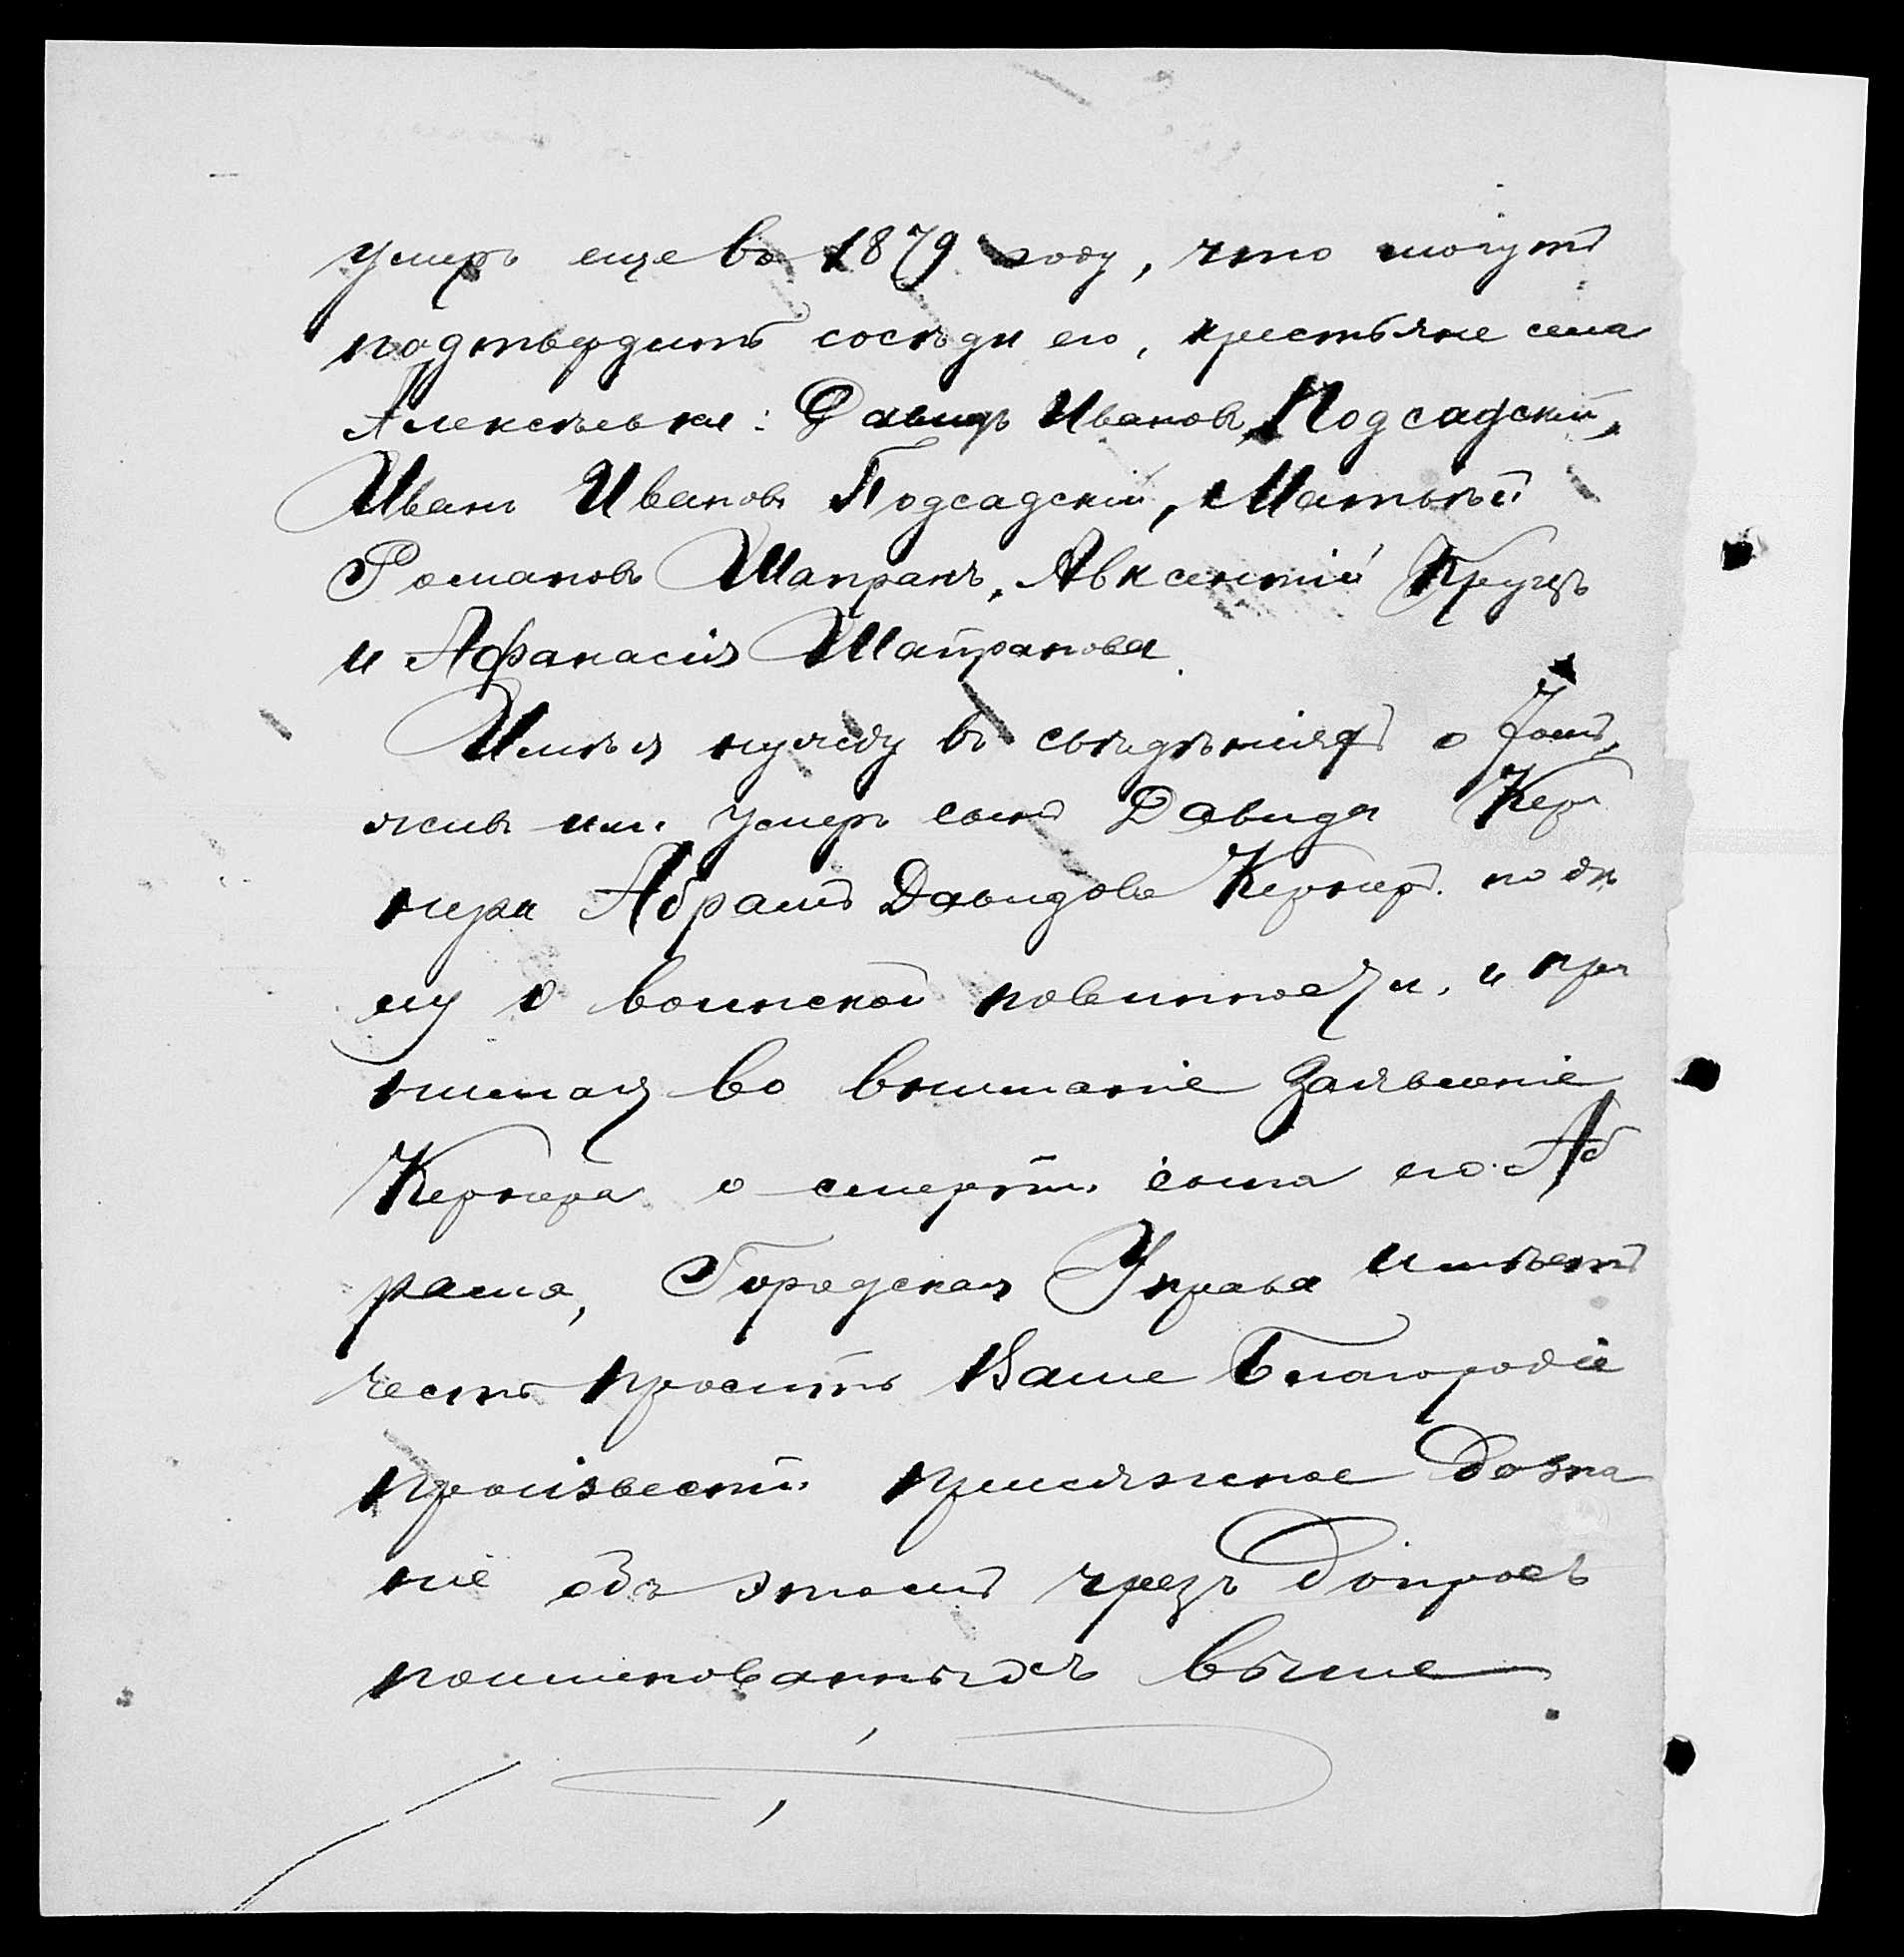 умеръ еще въ 1879 году, что могутъ
подтвердить сосѣди его, крестьяне села
Алексѣевки: Давидъ Ивановъ Подсадскій,
Иванъ Ивановъ Подсадскій, Матвѣй
Романовъ Шапранъ, Авксентій
и Афанасія Шапранова.
Имѣя нужду въ свѣдѣніяхъ о томъ,
живъ или умеръ сынъ Давида Кер
нера Абрамъ Давидовъ Кернеръ по дѣ
лу о воинской повинности, и при
нимая во вниманіе заявленіе
Кернера о смерти сына его Аб
рама, Городская Управа имѣетъ
честь просить Ваше Благородіе
произвести присяжное дозна
ніе объ этомъ чрезъ допросъ
поименованныхъ выше